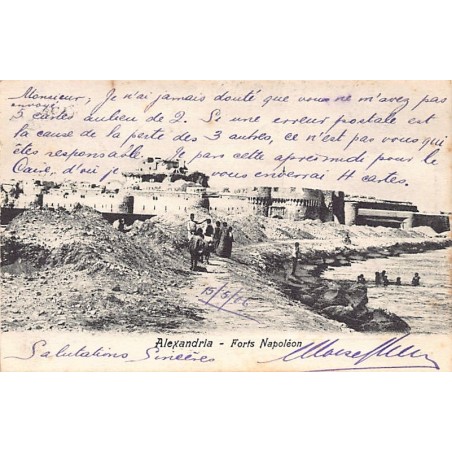 Monsieur, Je n'ai jamais douté que vous ne m'avez pas
envoyé
5 cartes au lieu de 2. Si une erreur postale est
la cause de la perte des 3 autres, ce n'est pas vous qui
êtes responsable. Je pars cette après midi pour le
Caire, d'où je vous enverrai 4 cartes.
15/5/06
Alexandria - Forts Napoléon
Salutations Sincères